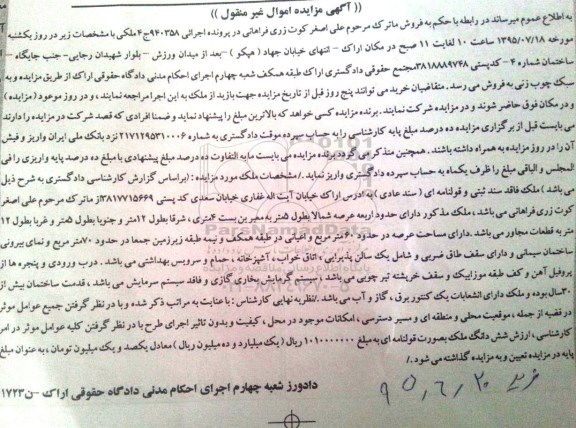 (( آگهی مزایده اموال غیر منقول ))
به اطلاع عموم میرساند در رابطه با حکم به فروش ماترک مرحوم علی اصغر کوت زری فراهانی در پرونده اجرائی ۹۴۰۳۵۸ج۴ملکی با مشخصات زیر در روز یکشنبه
مورخه ۱۳۹۵/۰۷/۱۸ ساعت ۱۰ لغایت ۱۱ صبح در مکان اراک - انتهای خیابان جهاد ( هپکو ) -بعد از میدان ورزش - بلوار شهیدان رجایی- جنب جایگاه -
ساختمان شماره ۴ - کدپستی ۳۸۱۸۸۸۹۷۴۸مجتمع حقوقی دادگستری اراک طبقه همکف شعبه چهارم اجرای احکام مدنی دادگاه حقوقی اراک از طریق مزایده و به
سبک چوب زنی به فروش می رسد .متقاضیان خرید می توانند پنج روز قبل از تاریخ مزایده جهت بازید از ملک به این اجرا مراجعه نمایند ، و در روز موعود (مزایده )
و در مکان فوق حاضر شوند و در مزایده شرکت نمایند. برنده مزایده کسی خواهد که بالاترین مبلغ را پیشنهاد نماید و ضمنا افرادی که قصد شرکت در مزایده را دارند
می بایست قبل از برگزاری مزایده ده درصد مبلغ پایه کارشناسی را به حساب سپرده موقت دادگستری به شماره ۲۱۷۱۲۹۵۳۱۰۰۰۶ نزد بانک ملی ایران واریز و فیش
آن را در روز مزایده به همراه داشته باشند . همچنین متذکر می گردد برنده مزایده می بایست مابه التفاوت ده درصد مبلغ پیشنهادی با مبلغ ده درصد پایه واریزی را فی
المجلس و الباقی مبلغ را ظرف یکماه به حساب سپرده دادگستری واریز نماید ./ مشخصات ملک مورد مزایده : (براساس گزارش کارشناسی دادگستری به شرح ذیل
می باشد ) ملک فاقد سند ثبتی و قولنامه ای ( سند عادی )به آدرس اراک خیابان آیت اله غفاری خیابان سعدی کد پستی ۳۸۱۷۷۱۵۶۶۹از ماترک مرحوم علی اصغر
کوت زری فراهانی می باشد ، ملک مذکور دارای حدود اربعه عرصه شمالا بطول ۵متر به معبر بن بست ۴متری ، شرقا بطول ۱۲متر و جنوبا بطول ۵متر و غربا بطول ۱۲
متر به قطعات مجاور می باشد .دارای مساحت عرصه در حدود ۶۰متر مربع و اعیانی در طبقه همکف و نیمه طبقه زیرزمین جمعا در حدود ۷۰متر مربع و نمای بیرونی
ساختمان سیمانی و دارای سقف طاق ضربی و شامل یک سالن پذیرایی ، اتاق خواب ، آشپزخانه ، حمام و سرویس بهداشتی می باشد . درب ورودی و پنجره ها از
پروفیل آهن و کف طبقه موزاییک و سقف خرپشته تیر چوبی می باشد ، سیستم گرمایش بخاری گازی و فاقد سیستم سرمایش می باشد ، قدمت ساختمان بیش از
۳۰سال بوده و ملک دارای انشعابات یک کنتور برق ، گاز و آب می باشد ./نظریه نهایی کارشناس : با عنایت به مراتب ذکر شده و با در نظر گرفتن جمیع عوامل موثر
در قضیه از جمله ، موقعیت محلی و منطقه ای و مسیر دسترسی ، امکانات موجود در محل ، کیفیت و بدون تاثیر اجرای طرح یا در نظر گرفتن کلیه عوامل موثر در امر
کارشناسی ، ارزش شش دانگ ملک بصورت قولنامه ای به مبلغ ۱۰۱۰۰۰۰۰۰۰ ریال ( یک میلیارد و ده میلیون ریال ) معادل یکصد و یک میلیون تومان ، به عنوان مبلغ
پایه در مزایده تعیین و به مزایده گذاشته می شود ./
دادورز شعبه چهارم اجرای احکام مدنی دادگاه حقوقی اراک -ن۱۷۲۳
۹۵,۶,۲۰
ParsNamadData